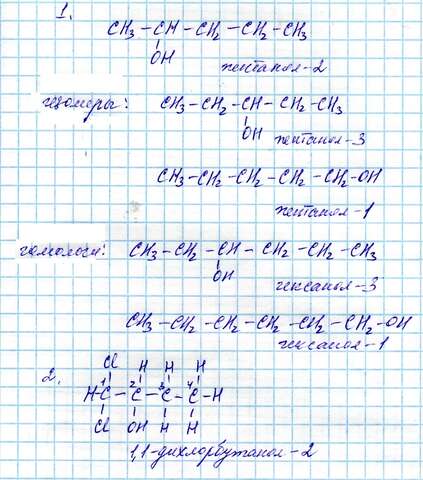 1.
CH3 – CH – CH2 – CH2 – CH3
OH
пентанол-2
изомеры: CH3 – CH2 – CH – CH2 – CH3
OH
пентанол-3
CH3 – CH2 – CH2 – CH2 – CH2 – OH
пентанол-1
гомологи: CH3 – CH2 – CH – CH2 – CH2 – CH3
OH
гексанол-3
CH3 – CH2 – CH2 – CH2 – CH2 – CH2 – OH
гексанол-1
2.
Cl H H H
H – C1 – C2 – C3 – C4 – H
Cl OH H H
1,1-дихлорбутанол-2